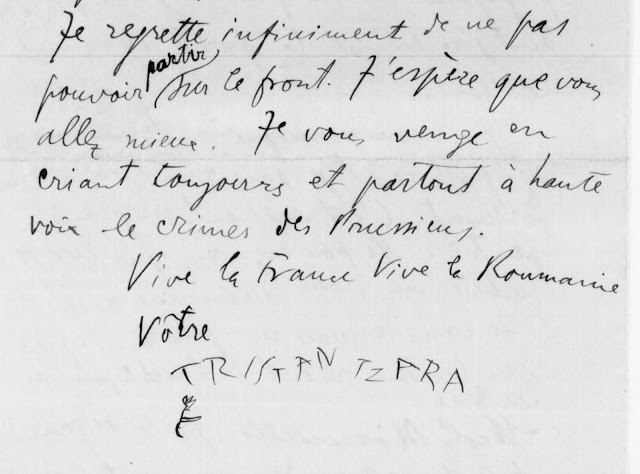 Je regrette infiniment de ne pas
pouvoir partir sur le front. J'espère que vous
allez mieux. Je vous venge en
criant toujours et partout à haute
voix le crimes des Prussiens.
Vive la France Vive la Roumanie
Vôtre
TRISTAN TZARA